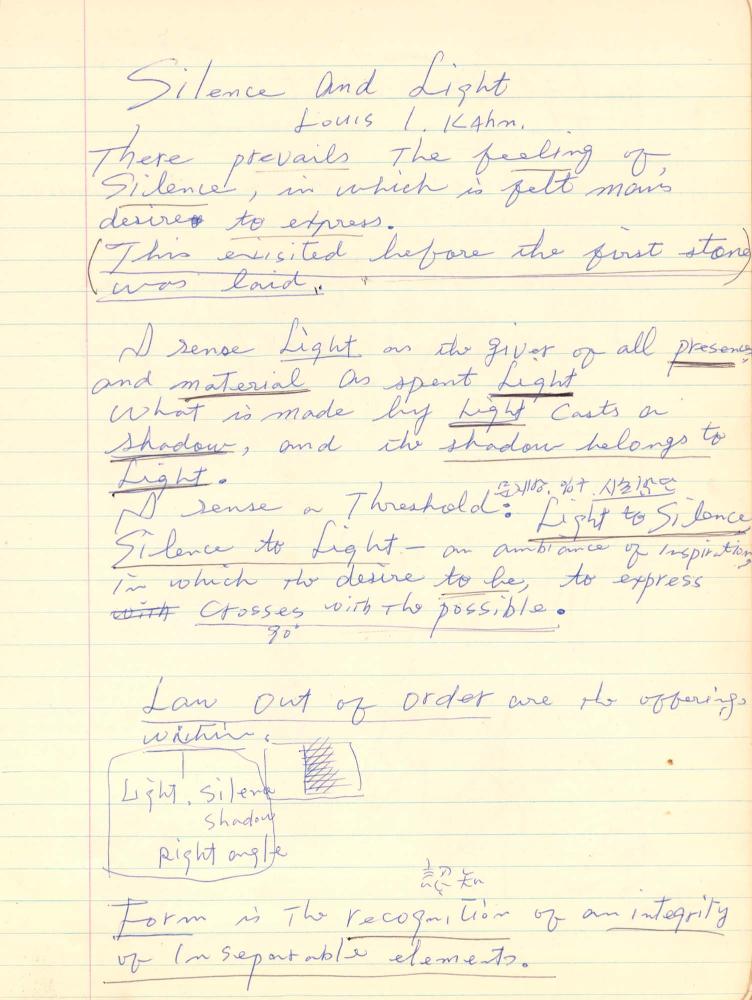 Silence and Light
Louis I. Kahn.
There prevails The feeling of
Silence, in which is felt man's
desire to express.
(This exisited before the first stone)
was laid.
I sense Light as the giver of all presence,
and material as spent Light
What is made by Light casts a
shadow, and the shadow belongs to
Light.
I sense a Threshold: Light to Silence
Silence to Light – an ambiance of inspiration,
in which the desire to be, to express
with crosses with the possible.
90°
Law out of order are the offerings
within.
Light. Silence
shadow
right angle
Form is The recognition of an integrity
of Inseparable elements.